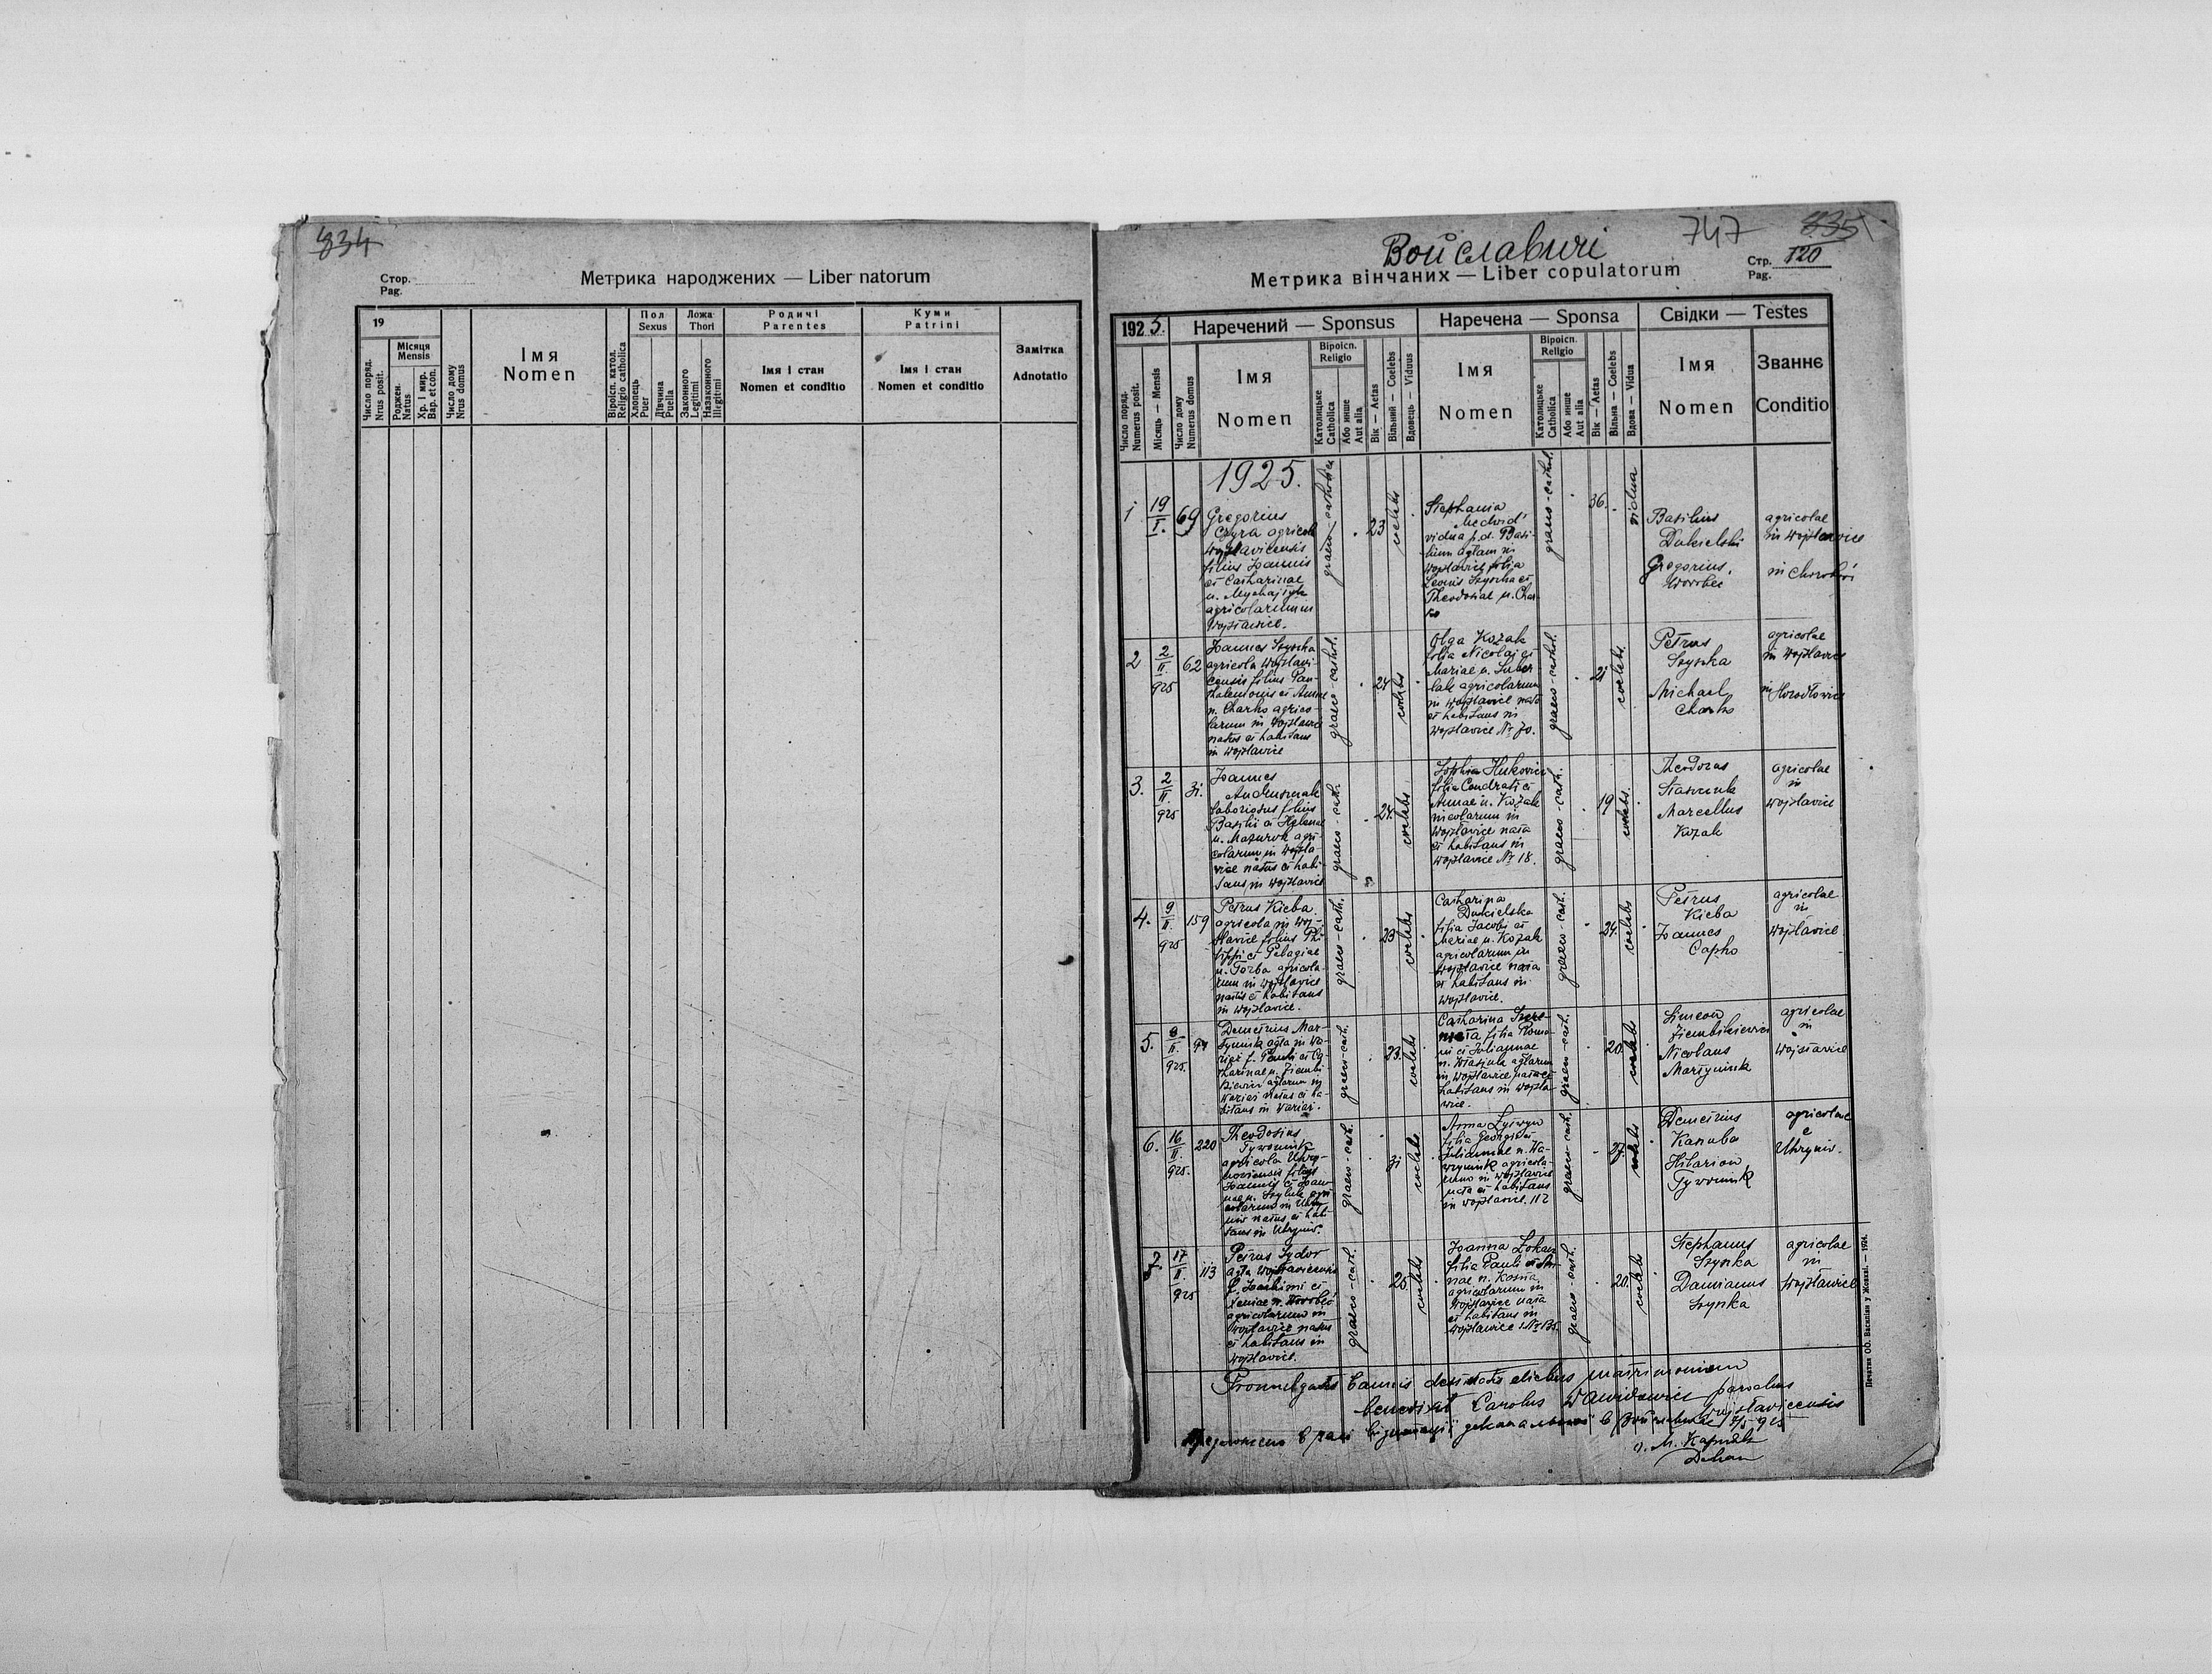 834
Стор.
Pag.
Метрика народжених — Liber natorum
19
Число поряд.
Nrus posit.
Місяця
Mensis
Роджен.
Natus
Хр. і мир.
Bap. et con.
Число дому
Nrus domus
Імя
Nomen
Віроісп. катол.
Religio catholica
Пол
Sexus
Хлопець
Puer
Дівчина
Puella
Ложа
Thori
Законного
Legitimi
Незаконного
Illegitimi
Родичі
Parentes
Імя і стан
Nomen et conditio
Куми
Patrini
Імя і стан
Nomen et conditio
Замітка
Adnotatio
Войславичі
747
835
Стр. 120
Pag.
Метрика вінчаних — Liber copulatorum
1925.
Наречений — Sponsus
Наречена — Sponsa
Свідки — Testes
Число поряд.
Numerus posit.
Місяць — Mensis
Число дому
Numerus domus
Імя
Nomen
Віроісп.
Religio
Католицьке
Catholica
Або инше
Aut alia
Вік — Aetas
Вільний — Coelebs
Вдовець — Viduus
Імя
Nomen
Віроісп.
Religio
Католицьке
Catholica
Або инше
Aut alia
Вік — Aetas
Вільна — Coelebs
Вдова — Vidua
Імя
Nomen
Званнє
Conditio
1925.
1
19
I.
69
Gregorius
Czyra agricola
Wojslavicensis
filius Joannis
et Catharinae
n.
agricolarum in
Wojslavice.
graeco-catholica
23
coelebs
Stephania
Medvid'
vidua p. d. Basi-
lium aglam in
Wojslavice filia
Leonis Szyszka et
Theodosiae n. Char-
ko
graeco-cathol.
36.
vidua
Basilius
Dukielski
Gregorius
Worobec
agricolae
in Wojslavice
in
2
2
II
925
62
Joannes Szyszka
agricola Wojslavi-
censis filius Pan-
thaleonis et Annae
n. Charko agrico-
larum in Wojslavice
natus et habitans
in Wojslavice
graeco-cathol.
24
coelebs
Olga Kozak
filia Nicolaj et
Mariae n.
agricolarum
in Wojslavice nata
et habitans in
Wojslavice Nr 70.
graeco-cathol.
21
coelebs.
Petrus
Szyszka
Michael
Charko
agricolae
in Wojslavice
in Horodlovice
3.
2
II.
925
31.
Joannes
laboriosus filius
Basilii et Helenae
n. Mazurok agri-
colarum in Wojsla-
vice natus et habi-
tans in Wojslavice
graeco-cath.
24.
coelebs
Sophia Hukovicz
filia Condrati et
Annae n. Kozak
in
Wojslavice nata
et habitans in
Wojslavice Nr 18.
graeco-cath.
19
coelebs.
Theodorus
Marcellus
Kozak
agricolae
in
Wojslavice
4.
9
II.
925
159
Petrus Kieba
agricola in Woj-
slavice filius Phi-
lippi et Pelagiae
n. Torba agricola-
rum in Wojslavice
natus et habitans
in Wojslavice.
graeco-cath.
23
coelebs
Catharina
Dukielska
filia Jacobi et
Mariae n. Kozak
agricolarum in
Wojslavice nata
et habitans in
Wojslavice.
graeco-cath.
24.
coelebs
Petrus
Kieba
Joannes
Capko
agricolae
in
Wojslavice
5.
9
II.
925.
Demetrius Mar-
tyniuk agla in Wa-
riaż f. Pauli et Ca-
tharinae n. Ziembi-
kiewicz aglarum in
Wariaż natus et ha-
bitans in Wariaż.
graeco-cath.
23.
coelebs
Catharina Szere-
meta filia Roma-
ni et Julianae
n. aglarum
in Wojslavice nata et
habitans in Wojsla-
vice.
graeco-cath.
20.
coelebs
Simeon
Ziembikiewicz
Nicolaus
Martyniuk
agricolae
in
Wojslavice
6.
16
II.
925.
220
Theodosius
Tyvoniuk
agricola Uhry-
noviensis filius
Joannis et Joan-
nae n. agri-
colarum in Uhry-
niv natus et habi-
tans in Uhryniv.
graeco-cath.
31
coelebs
Anna Lytwyn
filia Georgii et
Julianae n.
agricola-
rum in Wojslavice
nata et habitans
in Wojslavice. 112
graeco-cath.
27.
coelebs
Demetrius
Kanuba
Hilarion
Tyvoniuk
agricolae
e
Uhryniv.
7.
17
II.
925
113
Petrus Sydor
agla Wojslavicensis
f. Joachimi et
Xeniae n. Worobec
agricolarum in
Wojslavice natus
et habitans in
Wojslavice.
graeco-cath.
25.
coelebs
Joanna Lokaj
filia Pauli et An-
nae n. Kosna
agricolarum in
Wojslavice nata
et habitans in
Wojslavice Nr 135.
graeco-cath.
20.
coelebs
Stephanus
Szyszka
Damianus
Szyszka
agricolae
in
Wojslavice
Promulgatis bannis matrimonium
benedixit Carolus parochus
Wojslavicensis
Предложено в часі візитації деканальної в Войславичах
о. М.
Dekan
Печатня ОО. Василіян у Жовкві. — 1924.